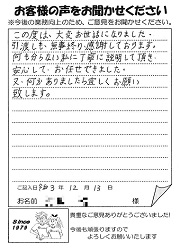 お客様の声をお聞かせください
※今後の業務向上のため、ご意見をお聞かせください。
この度は、大変お世話になりました。
引渡しも、無事終り、感謝しております。
何も分らない私に丁寧に説明して頂き、
安心して、お任せできました。
又、何かありましたら宜しくお願い
致します。
ご記入日 3年 12月 13日
お名前 様
Since
1979
貴重なご意見ありがとうございました!
今後も頑張りますので
よろしくお願いいたします